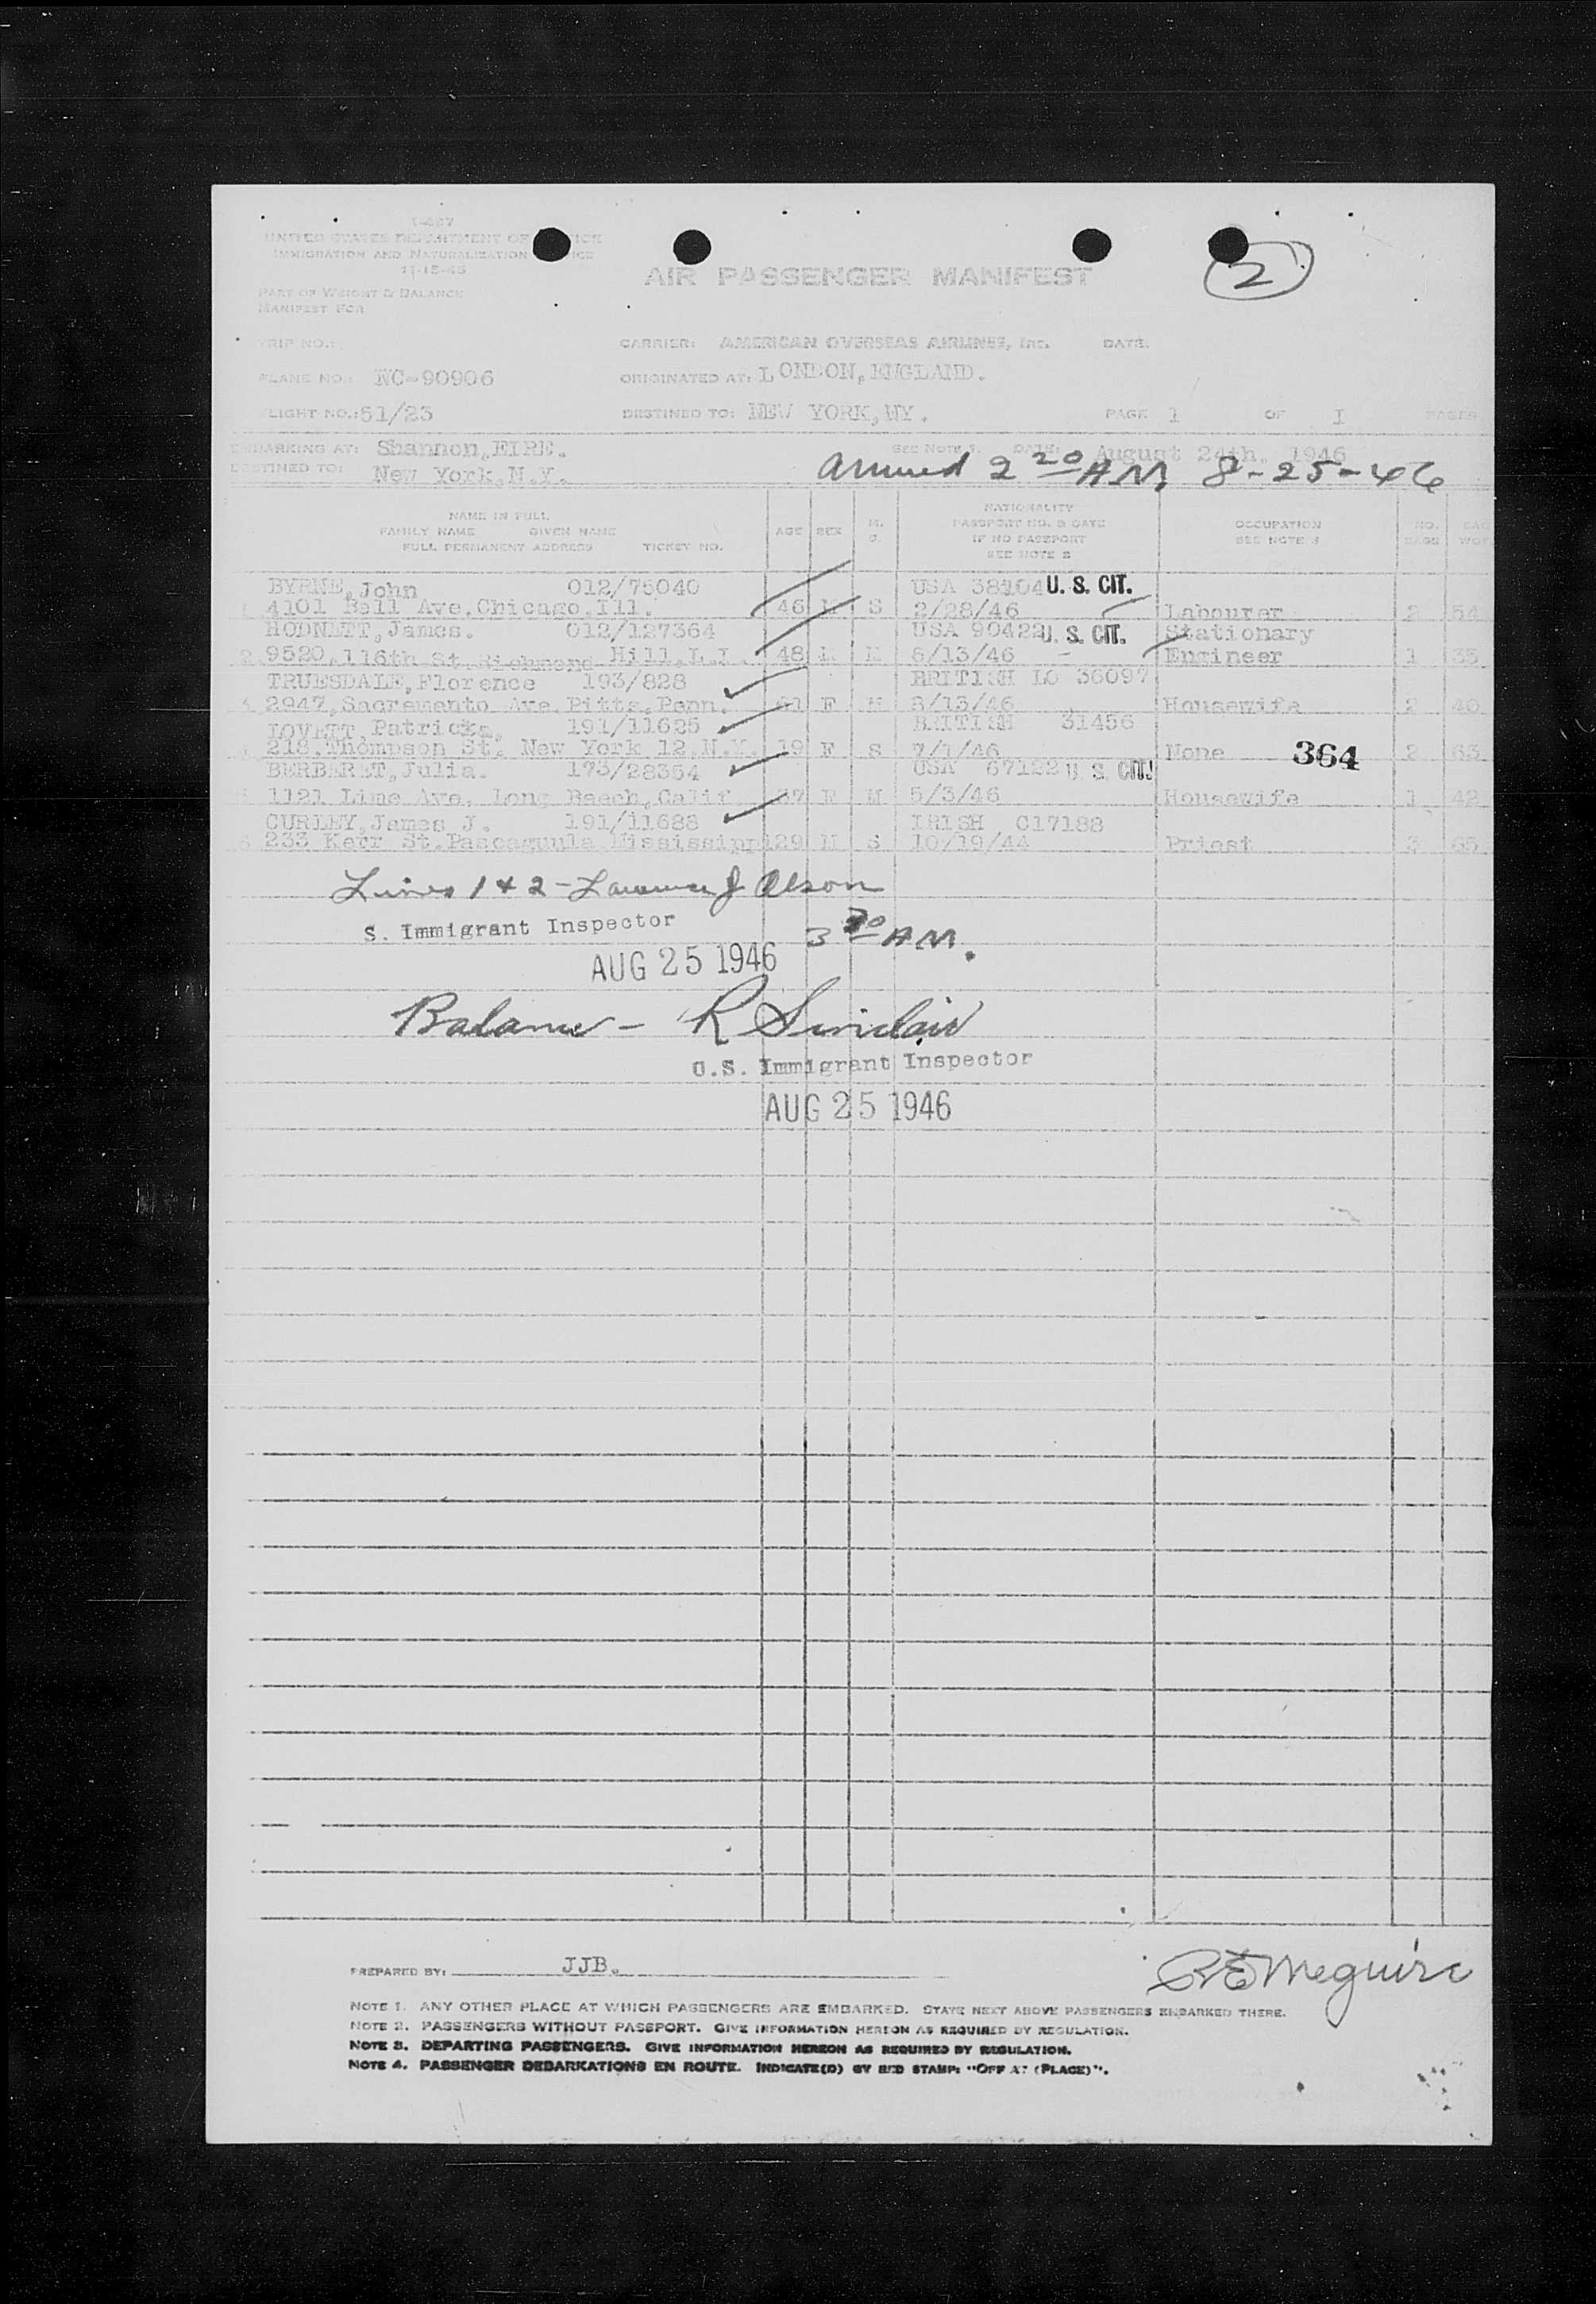 I-467
UNITED STATES DEPARTMENT OF
IMMIGRATION AND NATURALIZATION
11-15-45
AIR PASSENGER MANIFEST
2
PART OF WEIGHT & BALANCE
MANIFEST FOR
TRIP NO.:
CARRIER: AMERICAN OVERSEAS AIRLINES, Inc. DATE:
PLANE NO.: NC-90906 ORIGINATED AT: LONDON, ENGLAND.
FLIGHT NO.: 51/23 DESTINED TO: NEW YORK, NY. PAGE 1 OF 1 PAGES
EMBARKING AT: Shannon, EIRE. SEE NOTE 1. DATE: August 24th. 1946
DESTINED TO: New York, N.Y.
arrived 2 20 AM 8-25-46
NAME IN FULL
FAMILY NAME GIVEN NAME
FULL PERMANENT ADDRESS TICKET NO.
AGE SEX M. S.
NATIONALITY
PASSPORT NO. & DATE
IF NO PASSPORT
SEE NOTE 2
OCCUPATION
SEE NOTE 3
NO. BAGS
BAG WGT.
BYRNE, John 012/75040 USA 38104 U. S. CIT.
1 4101 Bell Ave. Chicago. Ill. 46 M S 2/28/46 Labourer 2 54
HODNETT, James. 012/127364 USA 90422 U. S. CIT. Stationary
2 9520, 116th St. Richmond Hill, L.I. 48 M M 6/13/46 Engineer 1 35
TRUESDALE, Florence 193/828 BRITISH LO 36097
3 2947, Sacramento Ave. Pitts. Penn. F M 8/13/46 Housewife 2 40
LOVETT, Patricia, 191/11625 BRITISH 31456
4 218, Thompson St. New York 12, N.Y. 19 F S 7/1/46 None 364 2 63
BERBERET, Julia. 173/28354 USA 67122 U. S. CIT.
5 1121 Lime Ave. Long Beach, Calif F M 5/3/46 Housewife 1 42
CURLEY, James J. 191/11688 IRISH C17188
6 233 Kerr St. Pascagoula Mississippi 29 M S 10/19/44 Priest 3 65
Lines 1 & 2 - Lawrence J Olson
S. Immigrant Inspector
3 20 AM.
AUG 25 1946
Balance - R Sinclair
U.S. Immigrant Inspector
AUG 25 1946
PREPARED BY: JJB.
RE Meguire
NOTE 1. ANY OTHER PLACE AT WHICH PASSENGERS ARE EMBARKED. STATE NEXT ABOVE PASSENGERS EMBARKED THERE.
NOTE 2. PASSENGERS WITHOUT PASSPORT. GIVE INFORMATION HEREON AS REQUIRED BY REGULATION.
NOTE 3. DEPARTING PASSENGERS. GIVE INFORMATION HEREON AS REQUIRED BY REGULATION.
NOTE 4. PASSENGER DEBARKATIONS EN ROUTE. INDICATE(D) BY RED STAMP: "OFF AT (PLACE)".